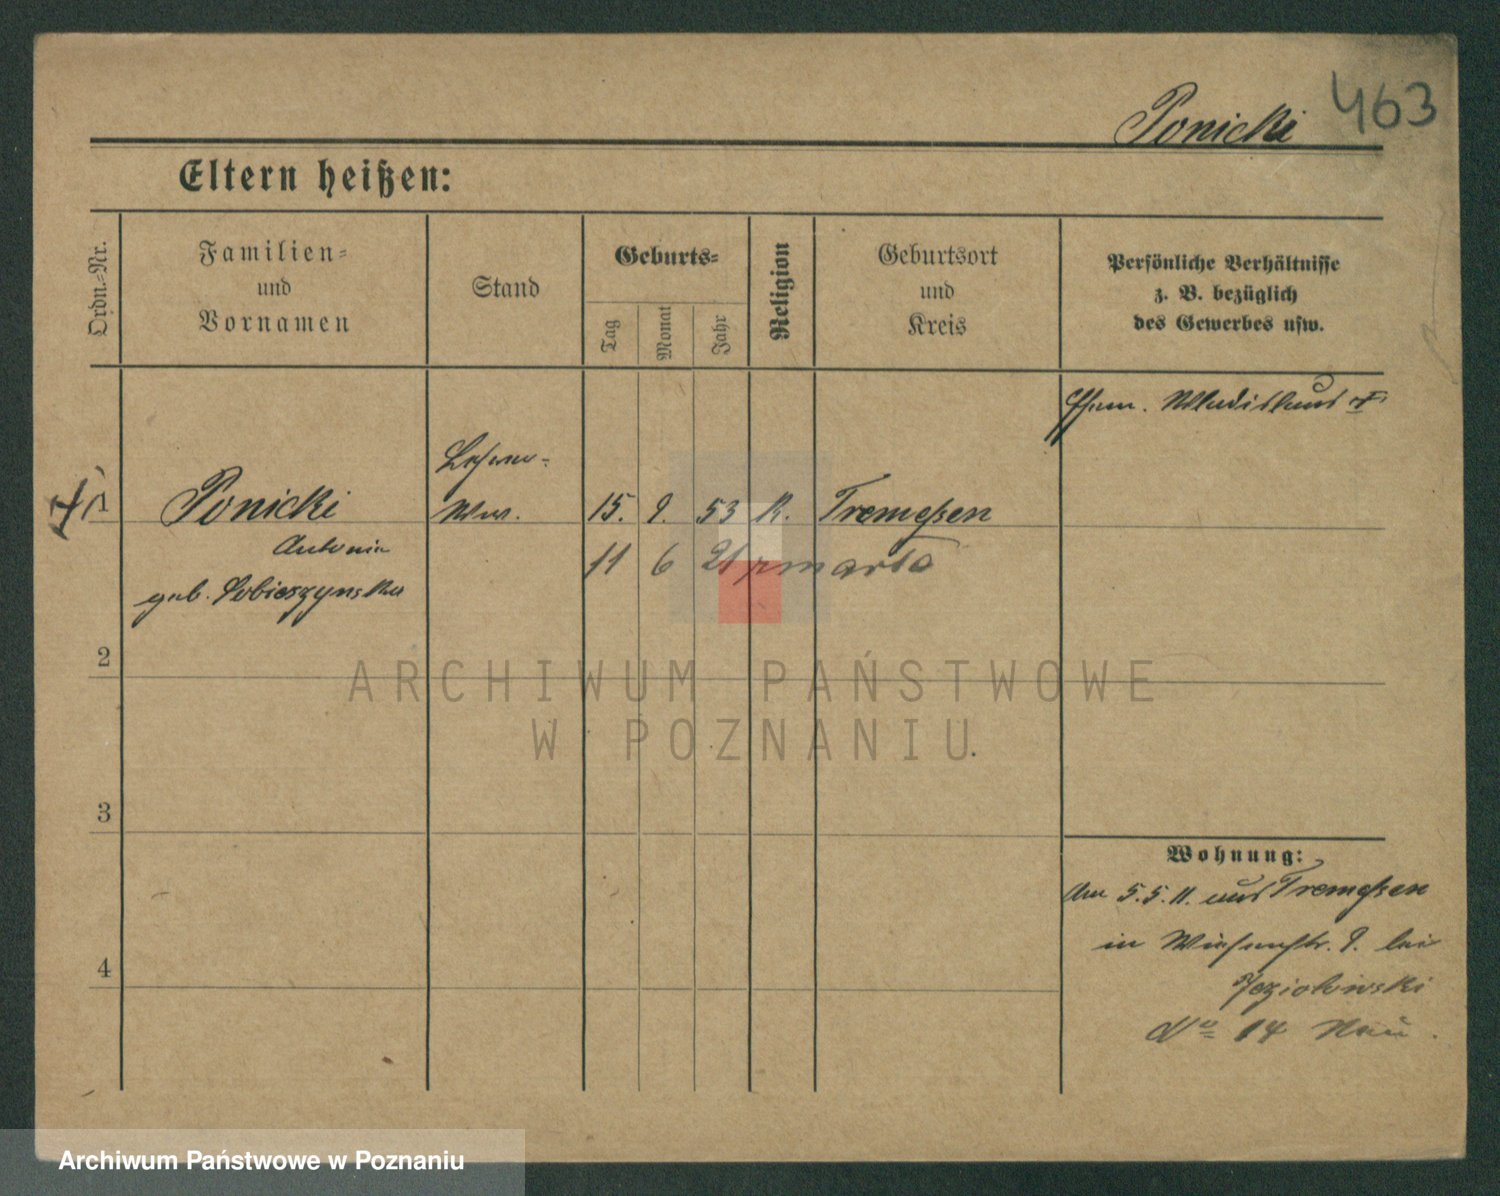 Ponicki 463
Eltern heißen:
Ordn.-Nr.
Familien-
und
Vornamen
Stand
Geburts-
Tag
Monat
Jahr
Religion
Geburtsort
und
Kreis
Persönliche Verhältnisse
z. B. bezüglich
des Gewerbes usw.
Ehem. Wladislaus †
Lehrer-
1 Ponicki Wwe. 15. 9. 53 K. Tremeßen
Antonie 11 6 21 zmarła
geb. Sobieszynska
2
3
4
Wohnung:
Am 5.5.11. aus Tremeßen
in Wiesenstr. 9. bei
Jeziołowski
No 14 Neu.
ARCHIWUM PAŃSTWOWE
W POZNANIU
Archiwum Państwowe w Poznaniu